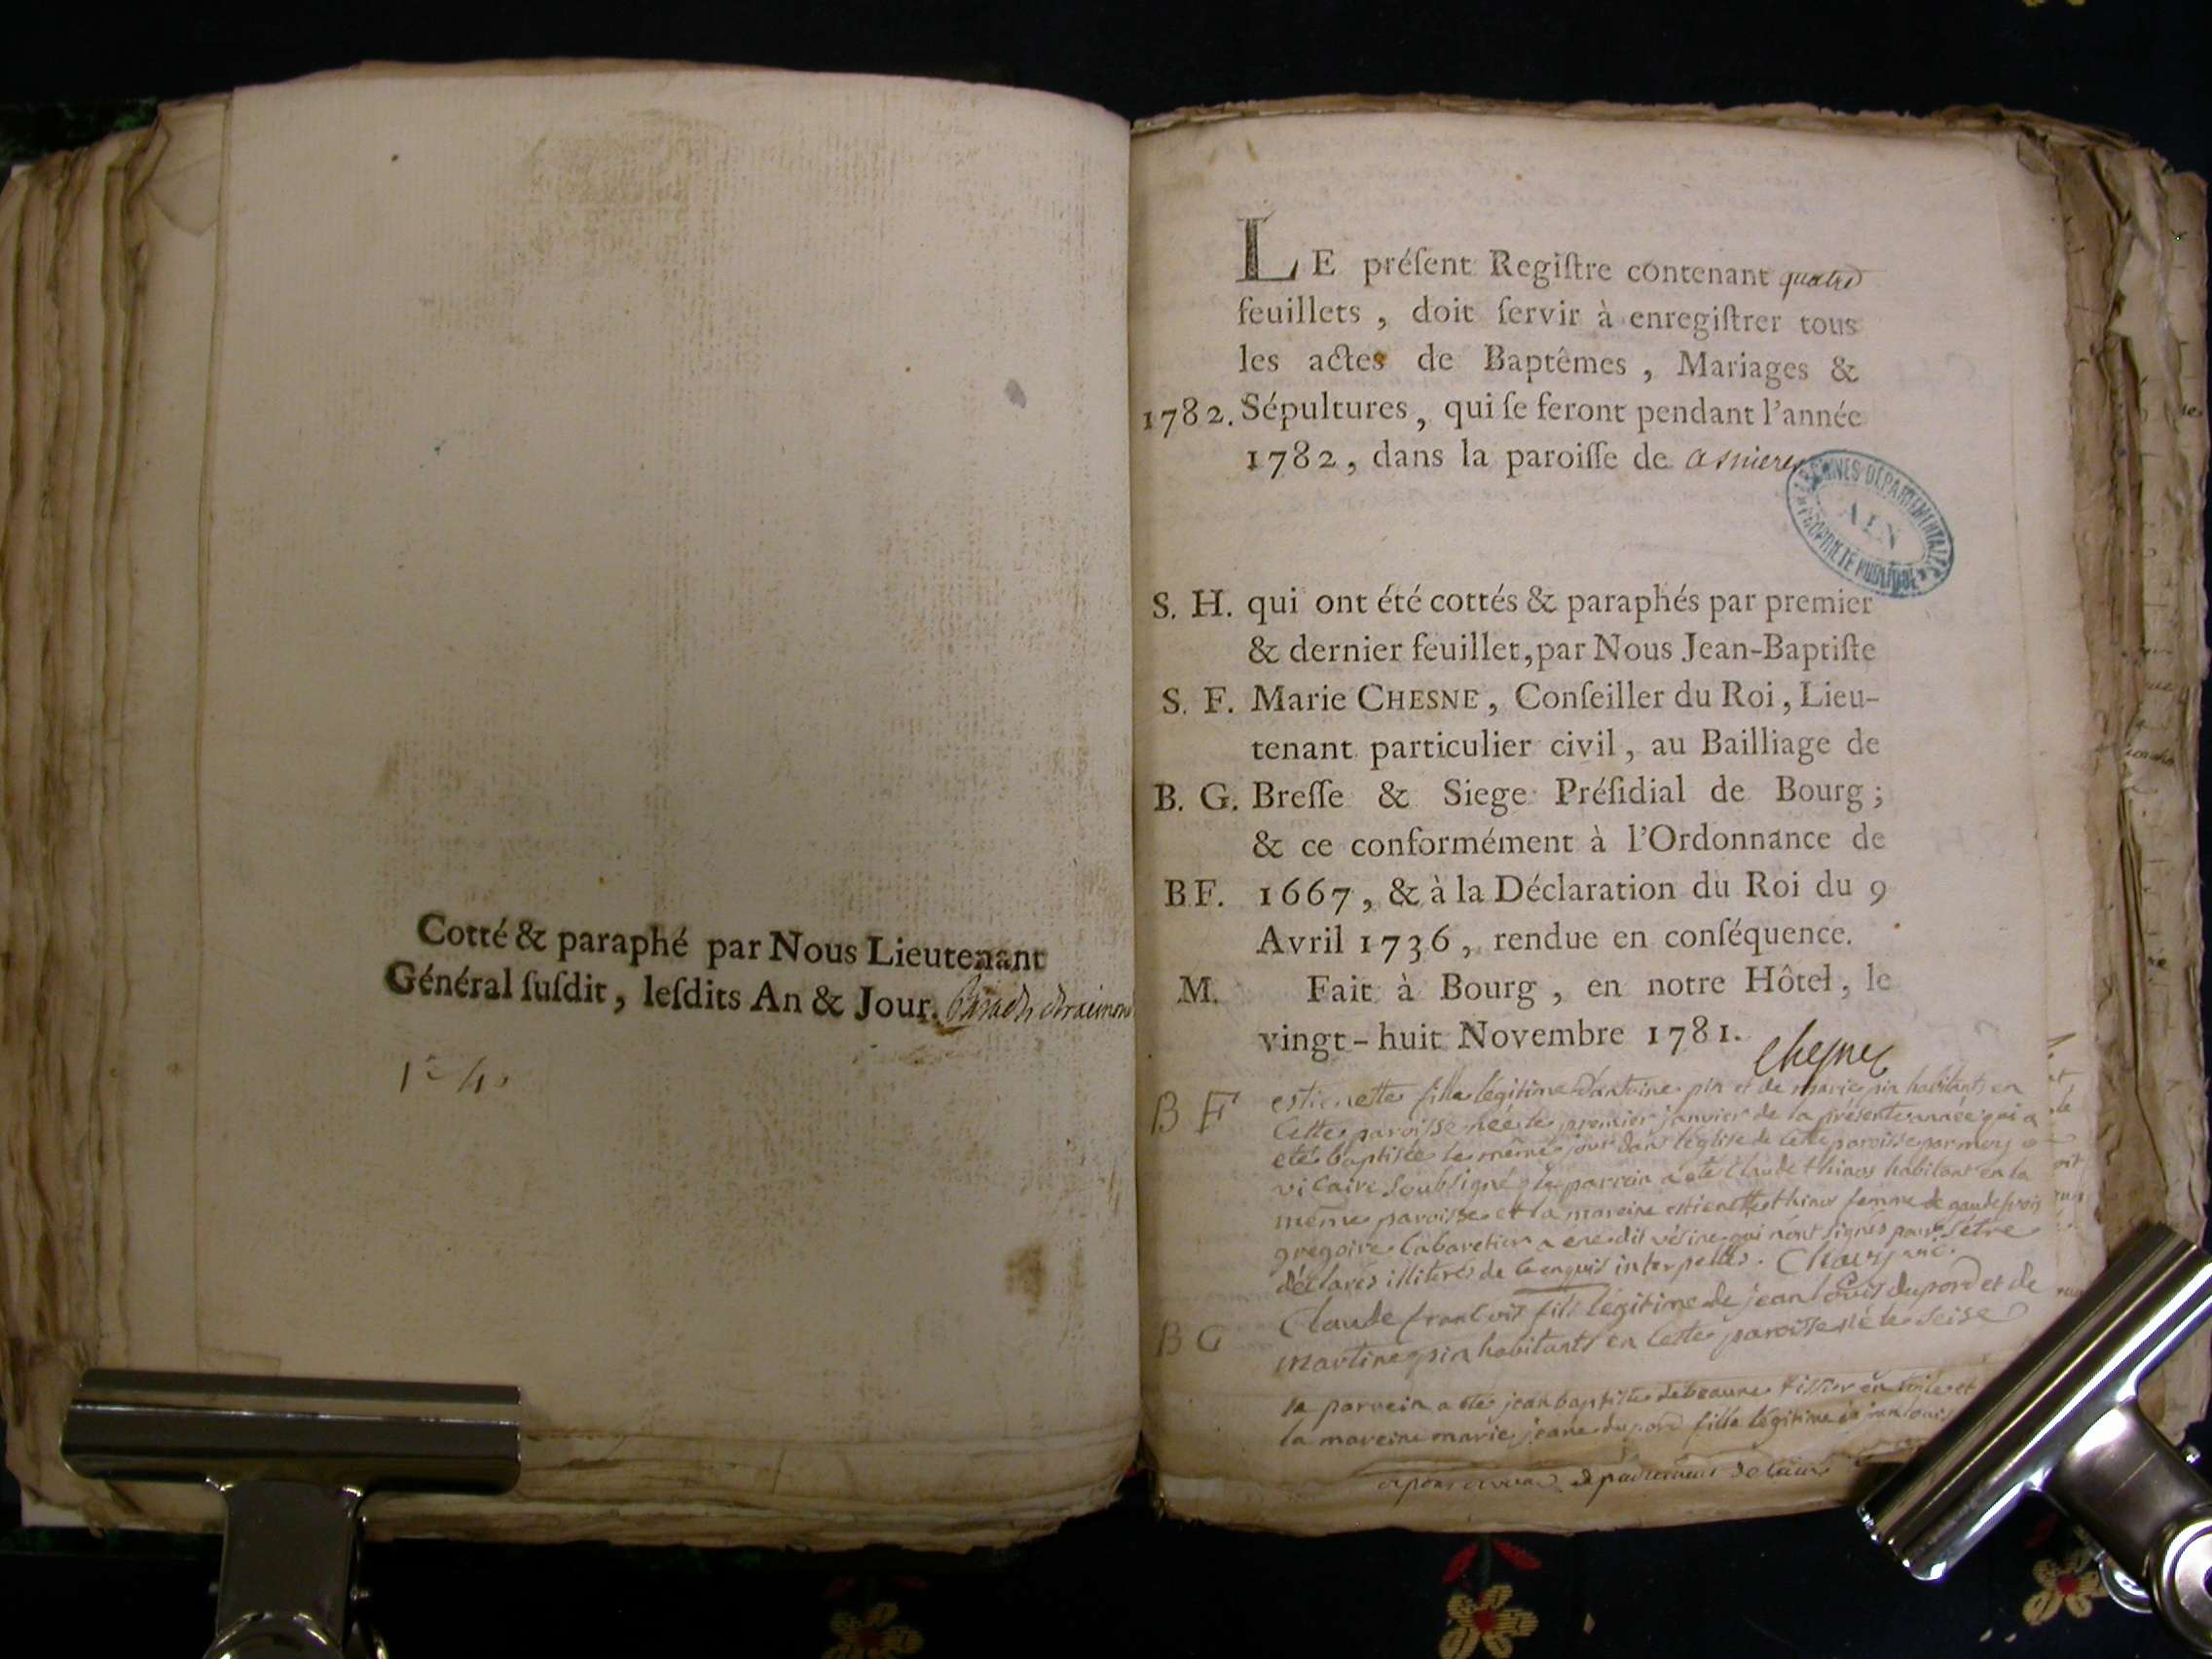 Cotté & paraphé par Nous Lieutenant
Général ſuſdit, leſdits An & Jour.
LE préſent Regiſtre contenant quatre
feuillets, doit ſervir à enregiſtrer tous
les actes de Baptêmes, Mariages &
1782. Sépultures, qui ſe feront pendant l'année
1782, dans la paroiſſe de asnieres
ARCHIVES DÉPARTEMENTALES
AIN
PROPRIÉTÉ PUBLIQUE
S. H. qui ont été cottés & paraphés par premier
& dernier feuillet, par Nous Jean-Baptiſte
S. F. Marie CHESNE, Conſeiller du Roi, Lieu-
tenant particulier civil, au Bailliage de
B. G. Breſſe & Siege Préſidial de Bourg;
& ce conformément à l'Ordonnance de
B F. 1667, & à la Déclaration du Roi du 9
Avril 1736, rendue en conſéquence.
M. Fait à Bourg, en notre Hôtel, le
vingt-huit Novembre 1781.
Chesne
B F estienette fille légitime d'antoine pin et de marie pin habitants en
cette paroisse née le premier janvier de la présente année qui a
eté baptisée le même jour dans l'église de cette paroisse par moy
vicaire soubsigné le parrein a été Claude thinos habitant en la
même paroisse et la mareine estienette thinos femme de
gregoire Cabaretier a qui n'ont signés pour s'être
déclarés illiterés de ce enquis interpellés.
B G Claude francois fils légitime de jean louis dupord et de
martine pin habitants en cette paroisse né le seise
le parrein a été jean baptiste debeaune tissier en toile et
la mareine marie jeane dupord fille légitime de jean louis